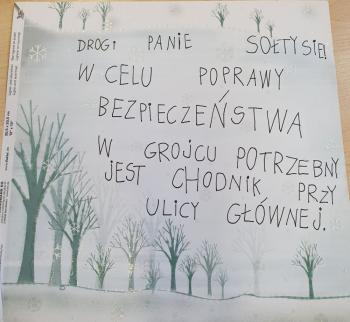 DROGI PANIE SOŁTYSIE!
W CELU POPRAWY
BEZPIECZEŃSTWA
W GROJCU POTRZEBNY
JEST CHODNIK PRZY
ULICY GŁÓWNEJ.